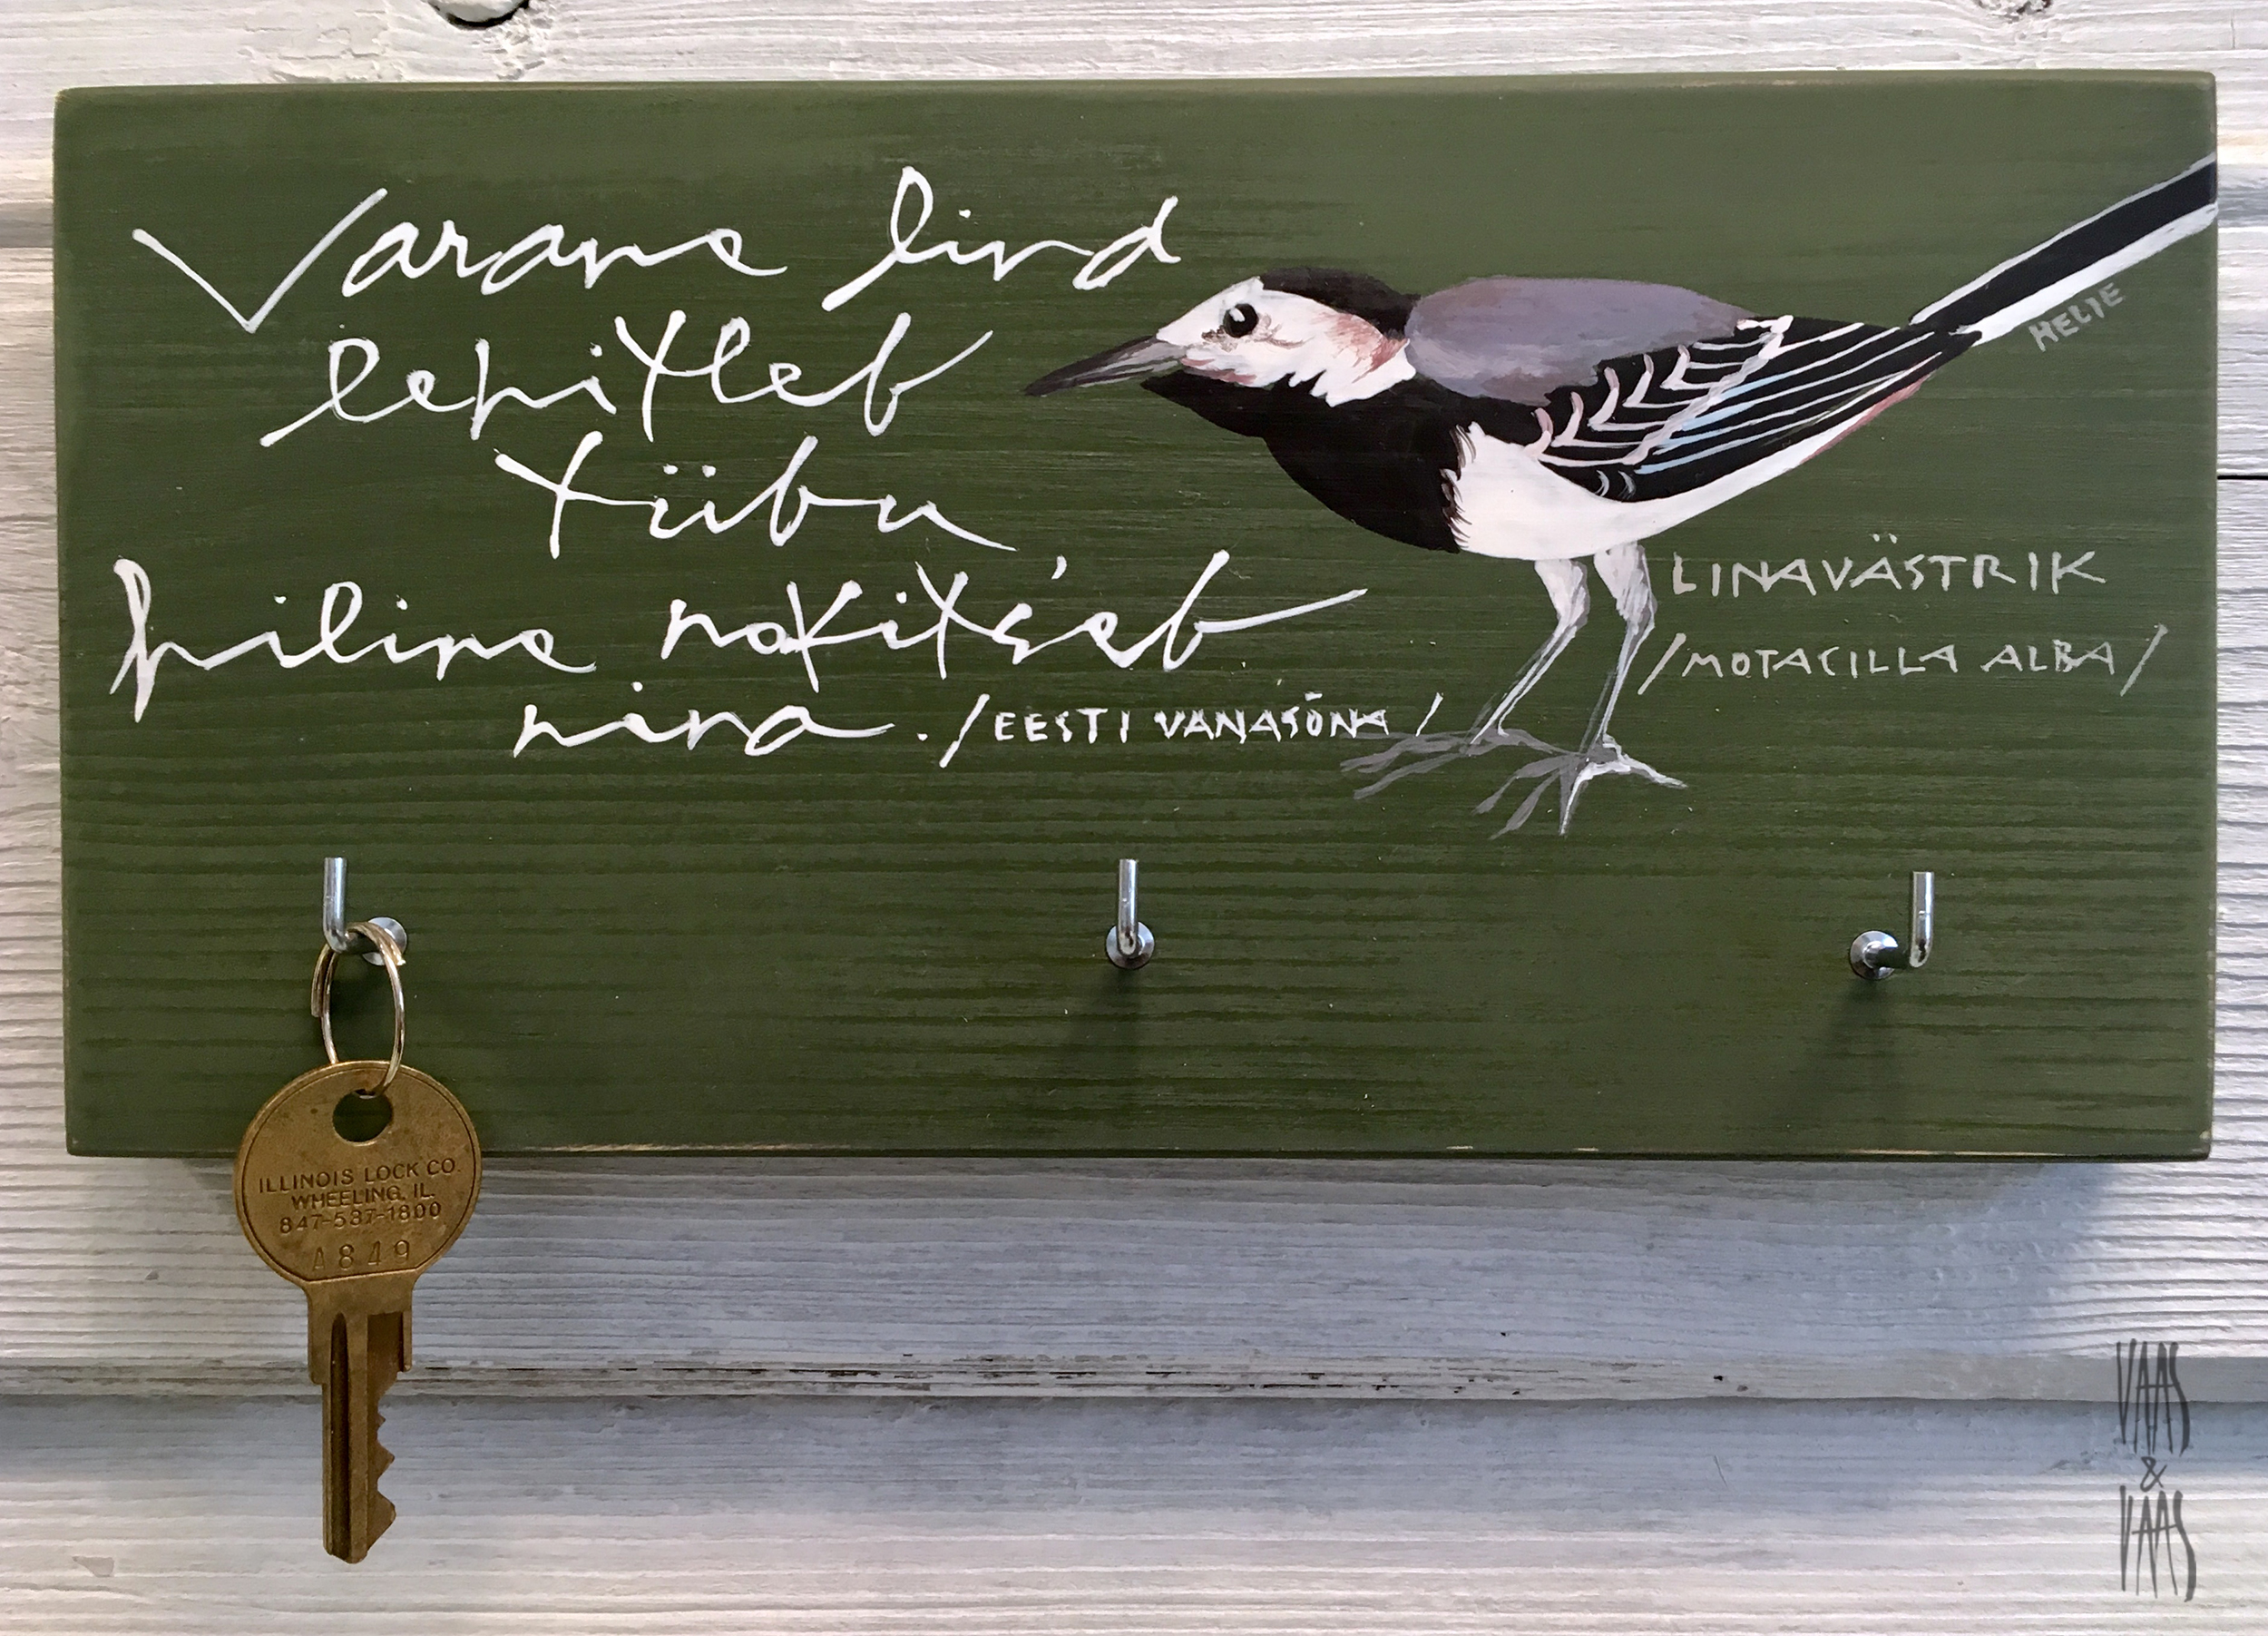 Varane lind
lehitleb
tiibu
hiline nokits'eb
nina. /EESTI VANASÕNA/
HELIE
LINAVÄSTRIK
/MOTACILLA ALBA/
ILLINOIS LOCK CO.
WHEELING, IL.
847-537-1800
A849
VAAS
&
VAAS